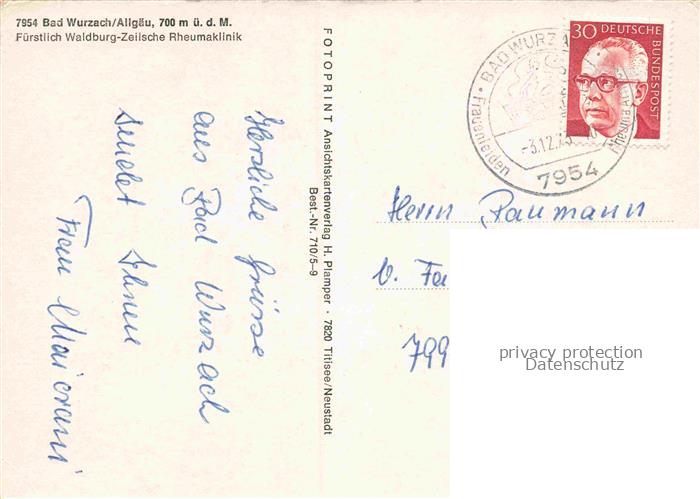 7954 Bad Wurzach/Allgäu, 700 m ü. d. M.
Fürstlich Waldburg-Zeilsche Rheumaklinik
Herzliche Grüsse
aus Bad Wurzach
sendet Ihnen
Frau Maiorani
FOTOPRINT Ansichtskartenverlag H. Plamper · 7820 Titisee/Neustadt
Best.-Nr. 710/5-9
BAD WURZA
Frauenleiden
-3.12.73
7954
30
DEUTSCHE
BUNDESPOST
Herrn Paumann
b. Fa
799
privacy protection
Datenschutz